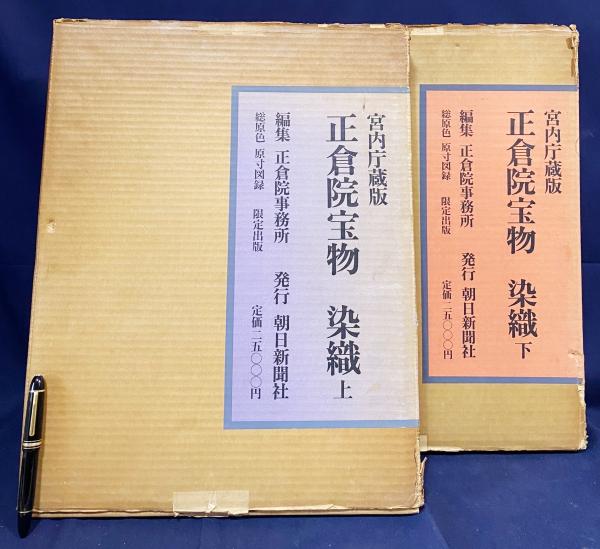 宮内庁蔵版
正倉院宝物 染織 上
編集 正倉院事務所 発行 朝日新聞社
総原色 原寸図録 限定出版 定価二五〇〇〇円
宮内庁蔵版
正倉院宝物 染織 下
編集 正倉院事務所 発行 朝日新聞社
総原色 原寸図録 限定出版 定価二五〇〇〇円